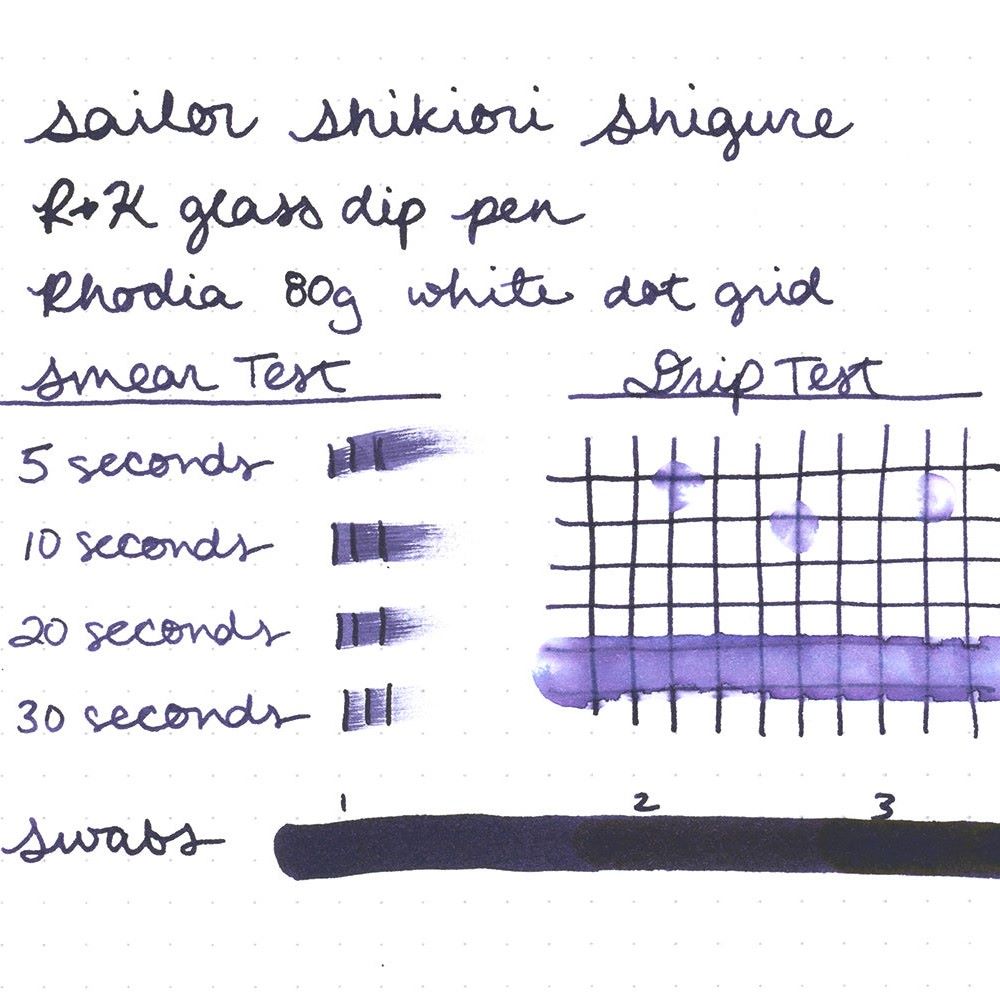 sailor shikiori shigure
R+K glass dip pen
Rhodia 80g white dot grid
Smear Test
Drip Test
5 seconds
10 seconds
20 seconds
30 seconds
1 2 3
swabs